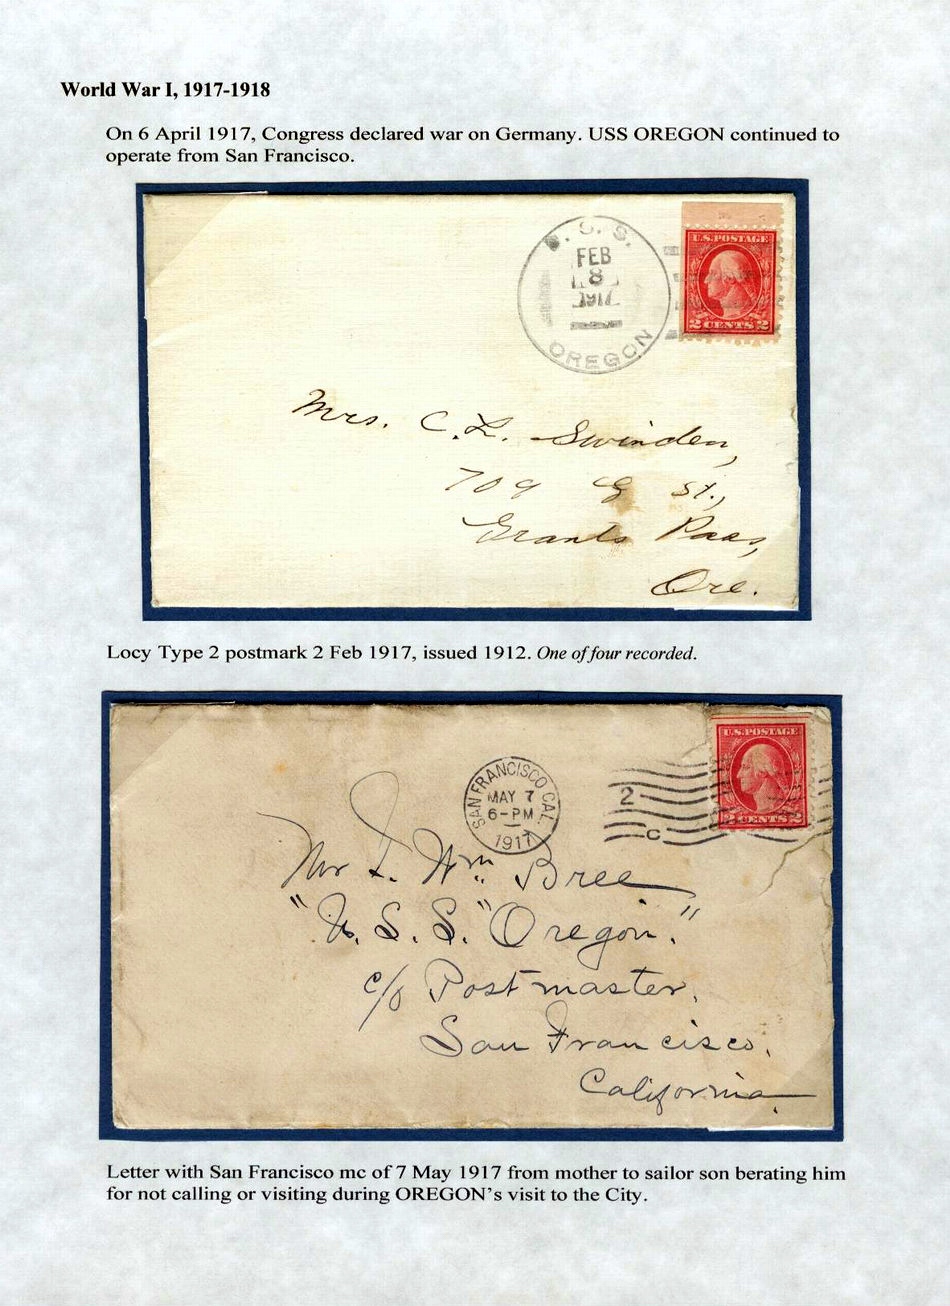 World War I, 1917-1918
On 6 April 1917, Congress declared war on Germany. USS OREGON continued to
operate from San Francisco.
S. S.
FEB
8
1917
OREGON
U.S. POSTAGE
2 CENTS 2
Mrs. C. L. Swinden,
709 G St.,
Grants Pass,
Ore.
Locy Type 2 postmark 2 Feb 1917, issued 1912. One of four recorded.
SAN FRANCISCO CAL.
MAY 7
6-PM
1917
2
C
U.S. POSTAGE
2 CENTS 2
Mr I. Wm. Bree
"U. S. S. "Oregon."
c/o Postmaster.
San Francisco.
California.
Letter with San Francisco mc of 7 May 1917 from mother to sailor son berating him
for not calling or visiting during OREGON's visit to the City.